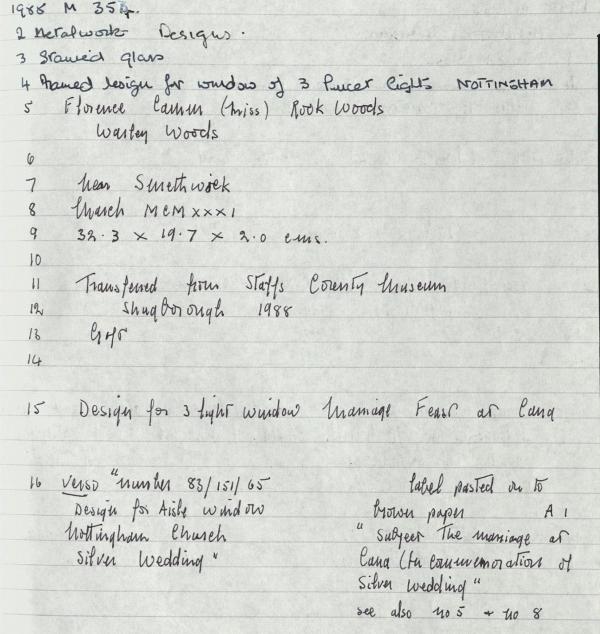 1988 M 354.
2 Metalwork Designs.
3 Stained glass
4 Framed design for window of 3 lights NOTTINGHAM
5 Florence Camm (Miss) Rook Woods
Warley Woods
6
7 near Smethwick
8 March MCMXXXI
9 32.3 x 19.7 x 2.0 cms.
10
11 Transferred from Staffs County Museum
12 Shugborough 1988
13 Gift
14
15 Design for 3 light window Marriage Feast at Cana
16 verso "Number 83/151/65
Design for Aisle window
Nottingham Church
Silver Wedding"
label pasted on to
brown paper A 1
"Subject The marriage at
Cana (In commemoration of
Silver wedding"
see also no 5 + no 8